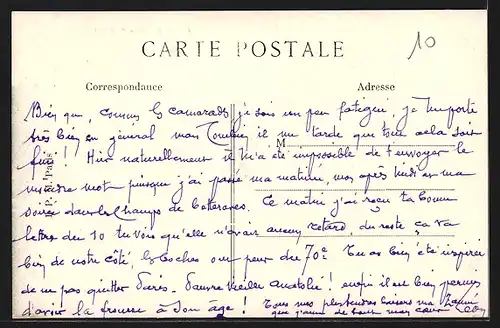 CARTE POSTALE
10
Correspondance
Adresse
M
Bien que, comme les camarades je sois un peu fatigué je me porte
très bien en général mais combien il me tarde que tout cela soit
fini ! Hier naturellement il m'a été impossible de t'envoyer le
moindre mot puisque j'ai passé ma matinée, mon après midi et ma
soirée dans les champs de betteraves. Ce matin j'ai reçu ta bonne
lettre du 10 tu vois qu'elle n'avait aucun retard, du reste ça va
bien de notre côté, les boches ont peur du 70e. Tu as bien été inspirée
de ne pas quitter Paris. Pauvre vieille Anatolie ! enfin il est bien permis
d'avoir la frousse à son âge ! Tous mes plus tendres baisers ma
j'aime de tout mon cœur